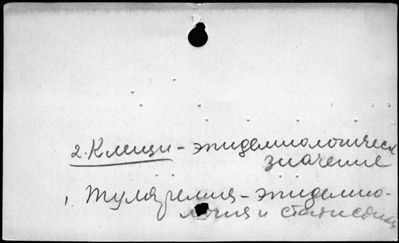 2. Клещи - эпидемиологическ
значение
1. Туляремия - эпидемио-
логия и статистика